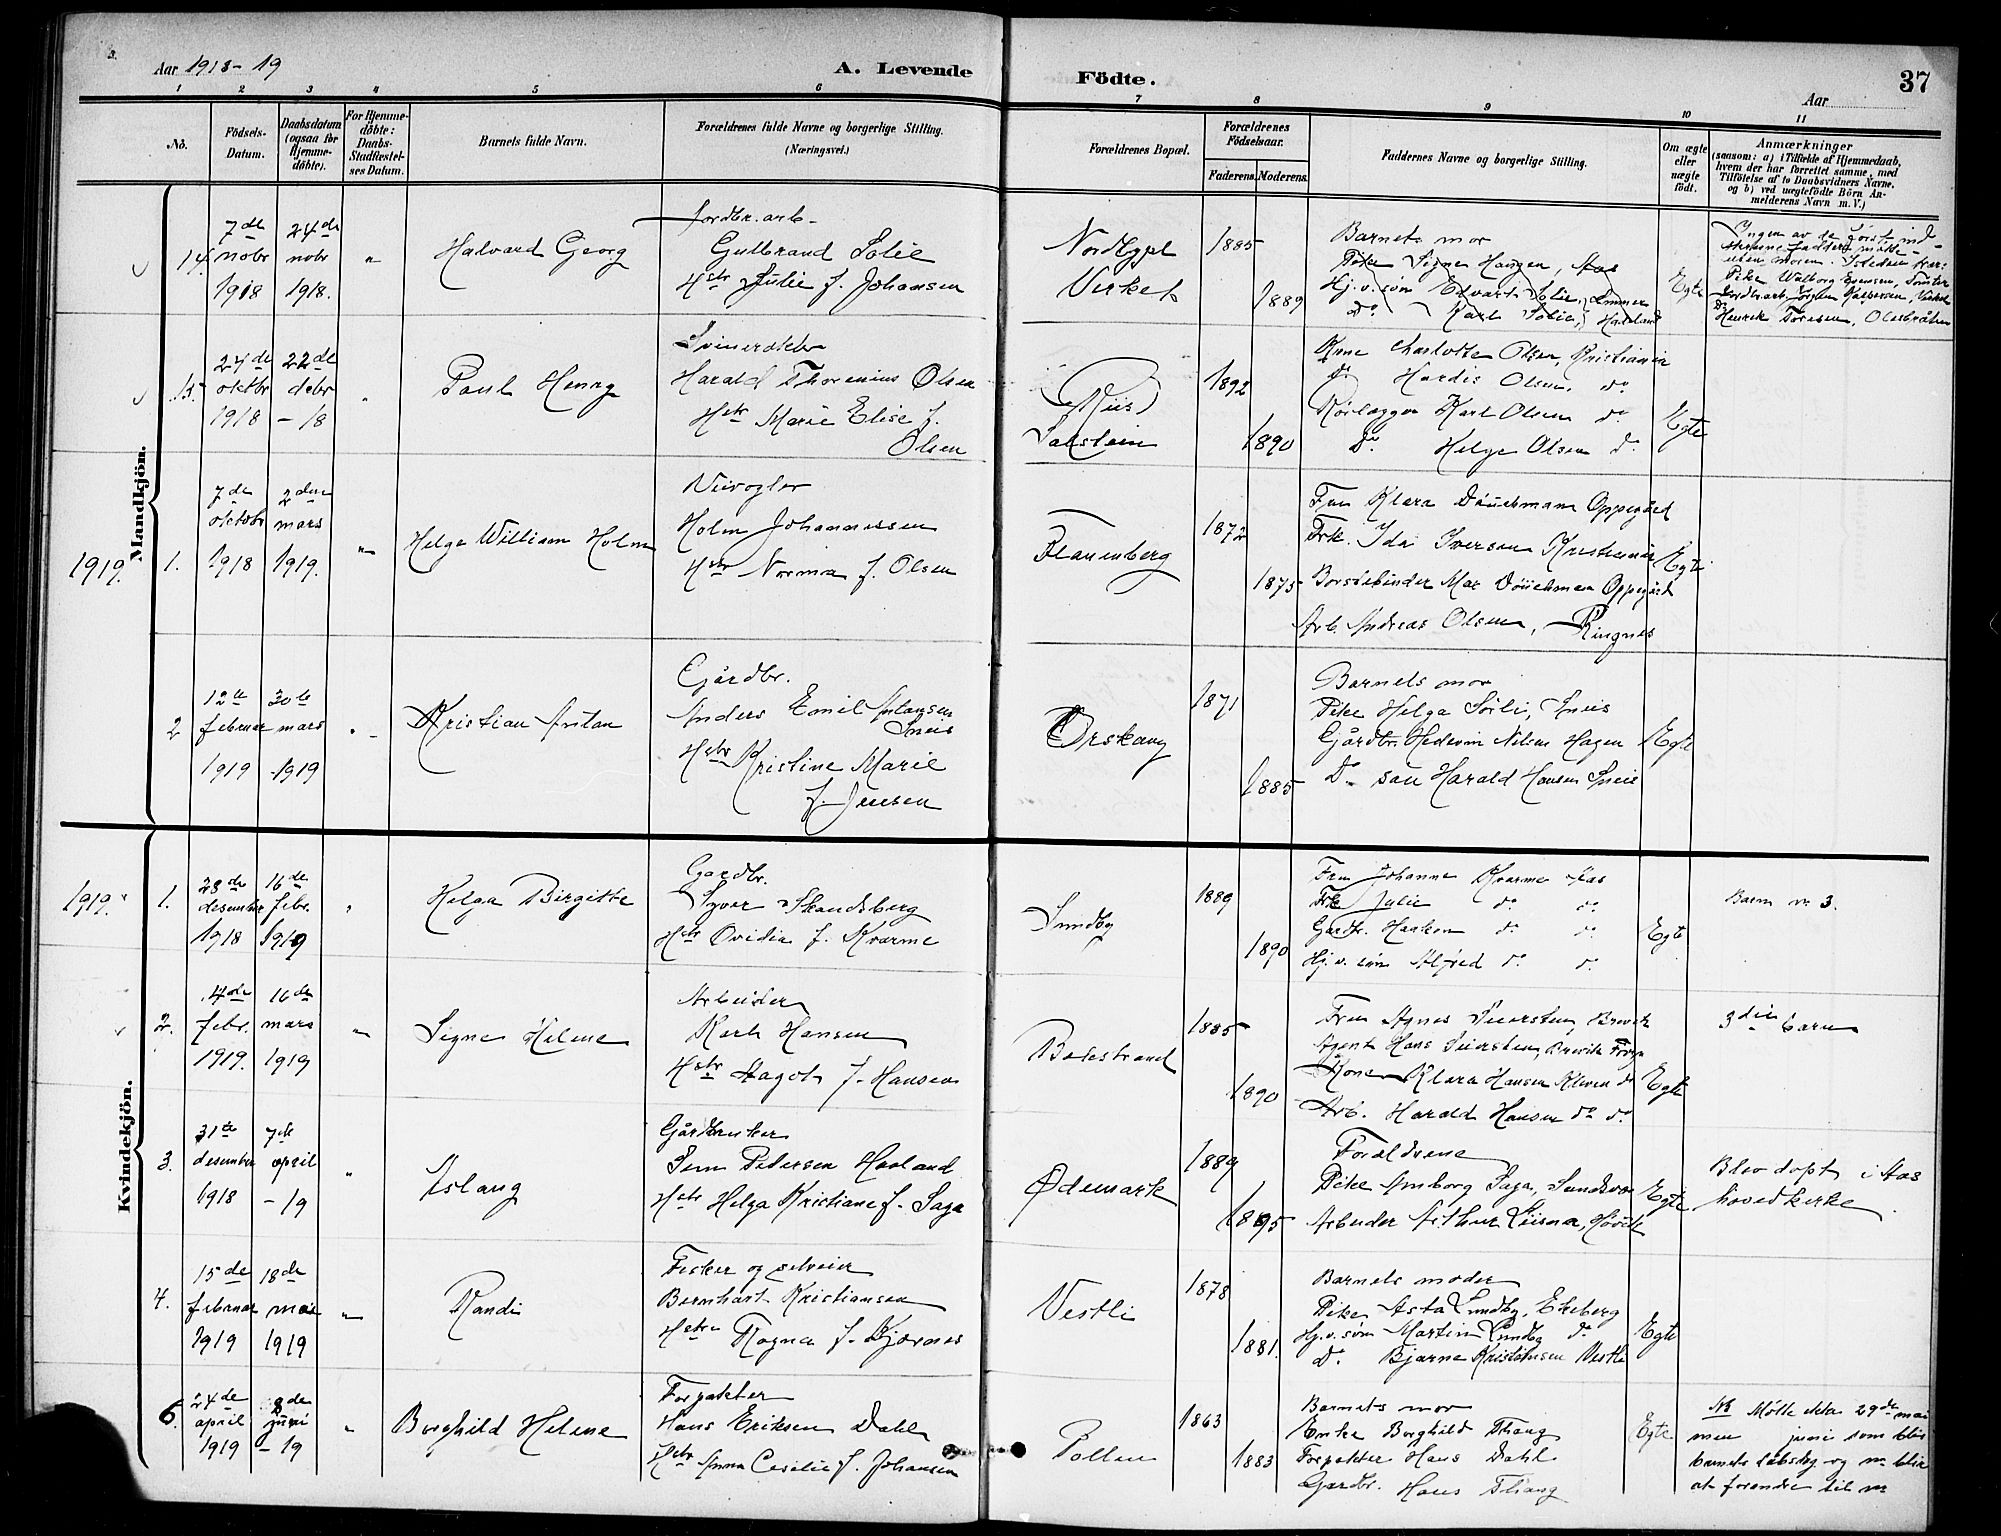 Aar 1918-19
A. Levende
Födte.
37
Aar
1 2 3 4 5 6 7 8 9 10 11
No.
Födsels-Datum.
Daabsdatum (ogsaa for Hjemme-döbte).
For Hjemme-döbte: Daabs-Stadfæstel-ses Datum.
Barnets fulde Navn.
Forældrenes fulde Navne og borgerlige Stilling.
(Næringsvei.)
Forældrenes Bopæl.
Forældrenes Födselsaar.
Faderens. Moderens.
Faddernes Navne og borgerlige Stilling.
Om ægte eller uægte födt.
Anmærkninger
(saasom: a) i Tilfælde af Hjemmedaab,
hvem der har forrettet samme, med
Tilföielse af to Daabsvidners Navne,
og b) ved uægtefödte Börn An-
melderens Navn m. V.)
Mandkjön.
14.
7de nobr 1918
24de nobr 1918.
"
Halvard Georg
Jordbr. arb.
Gulbrand Solie
Hstr Julie f. Johansen
Nordbygd
Virket
1885
1889
Barnets mor
Pike Signe Hansen, Aas
Hj.v. søn Edvart Solie,
do Karl Solie,
Egte
Ingen av de først ind-
uten moren. Istedenfor
Pike Walborg Evensen,
Jordbr.arb. Jørgen Kaspersen, Virket
Do Henrik Toresen,
15.
24de oktbr 1918
22de debr -18
"
Paul Henry
Svinerøkter
Harald Thorenius Olsen
Hstr Marie Elise f.
Olsen
(Riis)
Solstein
1892
1890
Kone Charlotte Olsen, Kristiania
do Hardis Olsen, do
Rørlægger Karl Olsen do
Do Helge Olsen do
Egte
1919.
1.
7de oktobr 1918
2den mars 1919.
"
Helge William Holm
Veivogter
Holm Johannessen
Hstr Norma f. Olsen
Flanenberg
1872
1875
Fru Klara Oppegård
Frk. Ida Iversen Kristiania
Børstebinder Max Oppegård
Arb. Andreas Olsen, Ringnes
Egte
2
12te februar 1919
30te mars 1919
"
Kristian Anton
Gårdbr.
Anders Emil Antonsen
Sneis
Hstr Kristine Marie
f. Jensen
Ørskaug
1871
1885
Barnets mor
Pike Helga Sørli, Sneis
Gårdbr. Hedevin Nilsen Hagen
Do søn Harald Hansen Sneis
Egte
Kvindekjön.
1919.
1.
28de desember 1918
16de febr. 1919
"
Helga Birgitte
Gardbr.
Syver Skandsberg
Hstr Ovidia f. Kvarme
Sundby
1889
1890
Fru Johanne Kvarme Aas
Frk Julie do do
Gardbr. Haakon do do
Hj.v. søn Alfred do do
Egte
Barn nr 3.
2.
4de febr. 1919.
16de mars 1919
"
Signe Helene
Arbeider
Karl Hansen
Hstr Dagot f. Hansen
Bølestrand
1885
1890
Fru Agnes Seiersten, Brevik
Agent Hans Seiersten, Brevik
Kone Klara Hansen Kleven do
Arb. Harald Hansen do do
Egte
3die barn
3.
31te desember 1918
7de april -19
"
Aslaug
Gårdbruker
Sem Pedersen Haaland
Hstr Helga Kristiane f. Saga
Ødemark
1889
1895
Foreldrene
Pike Amborg Saga,
Arbeider Arthur
Egte
Blev døpt i Aas
hovedkirke
4.
15de februar 1919
18de mai 1919
"
Randi
Fisker og selveier
Bernhart Kristiansen
Hstr Ragna f. Kjærnes
Vestli
1878
1881.
Barnets moder
Pike Asta Sundby, Ekeberg
Hj.v. søn Martin Sundby do
Do Bjarne Kristiansen Vestli
Egte
6.
24de april 1919
8de juni -19
"
Borghild Helene
Forpakter
Hans Eriksen Dahl
Hstr Anna Cecelie f. Johansen
Pollen
1863
1883
Barnets mor
Enke Borghild Thang
Forpakter Hans Dahl
Gardbr. Hans Thang
Egte
NB Møtte ikke 29de mai
men juni som blir
barnets dåbsdag og nr blir
at forandre til nr